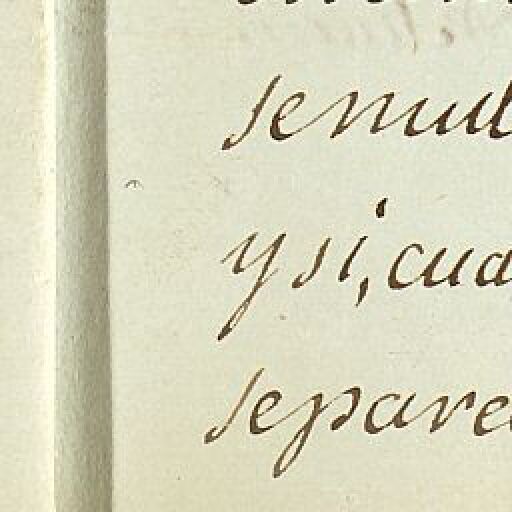 semul
y si, cua
separe